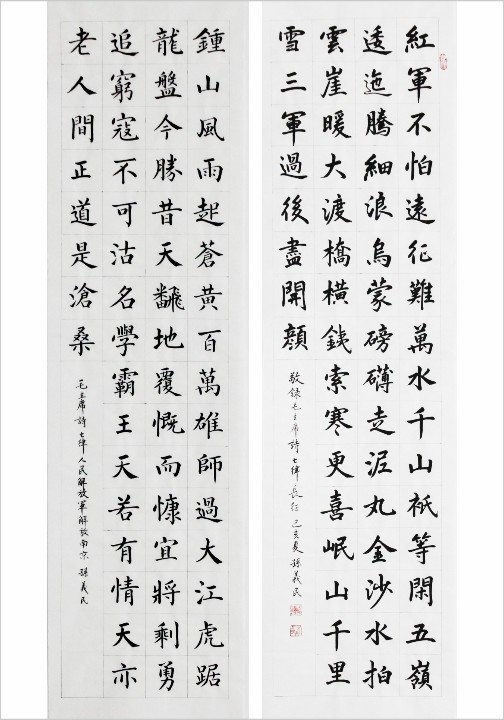 紅軍不怕遠征難萬水千山祇等閑五嶺
透迤騰細浪烏蒙磅礴走泥丸金沙水拍
雲崖暖大渡橋橫銕索寒更喜岷山千里
雪三軍過後盡開顔
敬録毛主席詩七律長征 己亥夏 孫義民
鍾山風雨起蒼黃百萬雄師過大江虎踞
龍盤今勝昔天飜地覆慨而慷宜將剩勇
追窮寇不可沽名學霸王天若有情天亦
老人間正道是滄桑
毛主席詩七律人民解放軍解放南京 孫義民